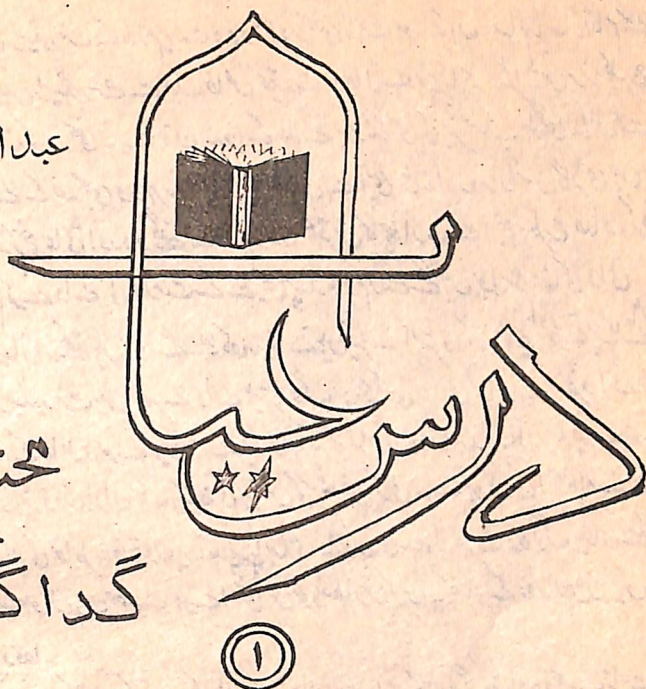 عبدا
درس حیات
گداگ
۱